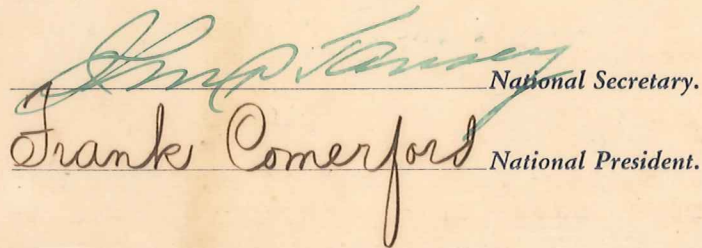 John P Tansey National Secretary.
Frank Comerford National President.